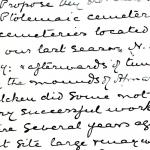 Propose they
Ptolemaic cemeter
cemeteries located
our last season N.
y: "afterwards if tim
the mounds of
did some not
ery successful work
re several years ag
t site large